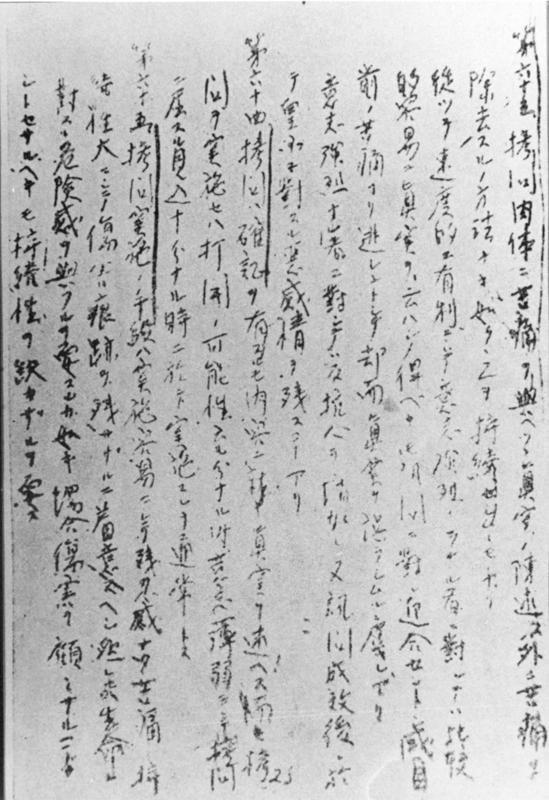 第六十三 拷問肉体ニ苦痛ヲ與ヘツヽ真実ノ陳述ノ外ニ苦痛ヲ
除去スルノ方法ナキ如ク之ヲ持続セシモノナリ
従ツテ速度的ニ有利ニシテ意志強烈ナラザル者ニ對シテハ比較
的容易ニ真実ヲ云ハシメ得ベキモ問ニ對シ迎合セントシ或ハ目
前ノ苦痛ヨリ逃レントシ却而真実ヲ誤ラシムル虞レアリ
意志強烈ナル者ニ對シテハ反抗心ヲ又訊問成敗後ニ於
テ皇軍ニ對スル悪感情ヲ残スコトアリ
第六十四 拷問ハ確証ヲ有スルモ内容ニ真実ヲ述ベズ
問ヲ実施セハ打開ノ可能性充分ナル薄弱ニシテ拷問
ニ屈スル見込十分ナル時ニ於テ実施スルヲ通常トス
第六十五 拷問実施ノ手段ハ実施容易ニシテ残忍感ナク苦痛ノ持
性大ニシテ傷害ニ痕跡ヲ残サザルニ着意スヘシ然レ共生命ニ
對スル危険感ヲ與フルヲ要スルカ如キ場合傷害ヲ顧ミサルコトナ
シトセサルヘキモ持続性ヲ欠カザルヲ要ス
25